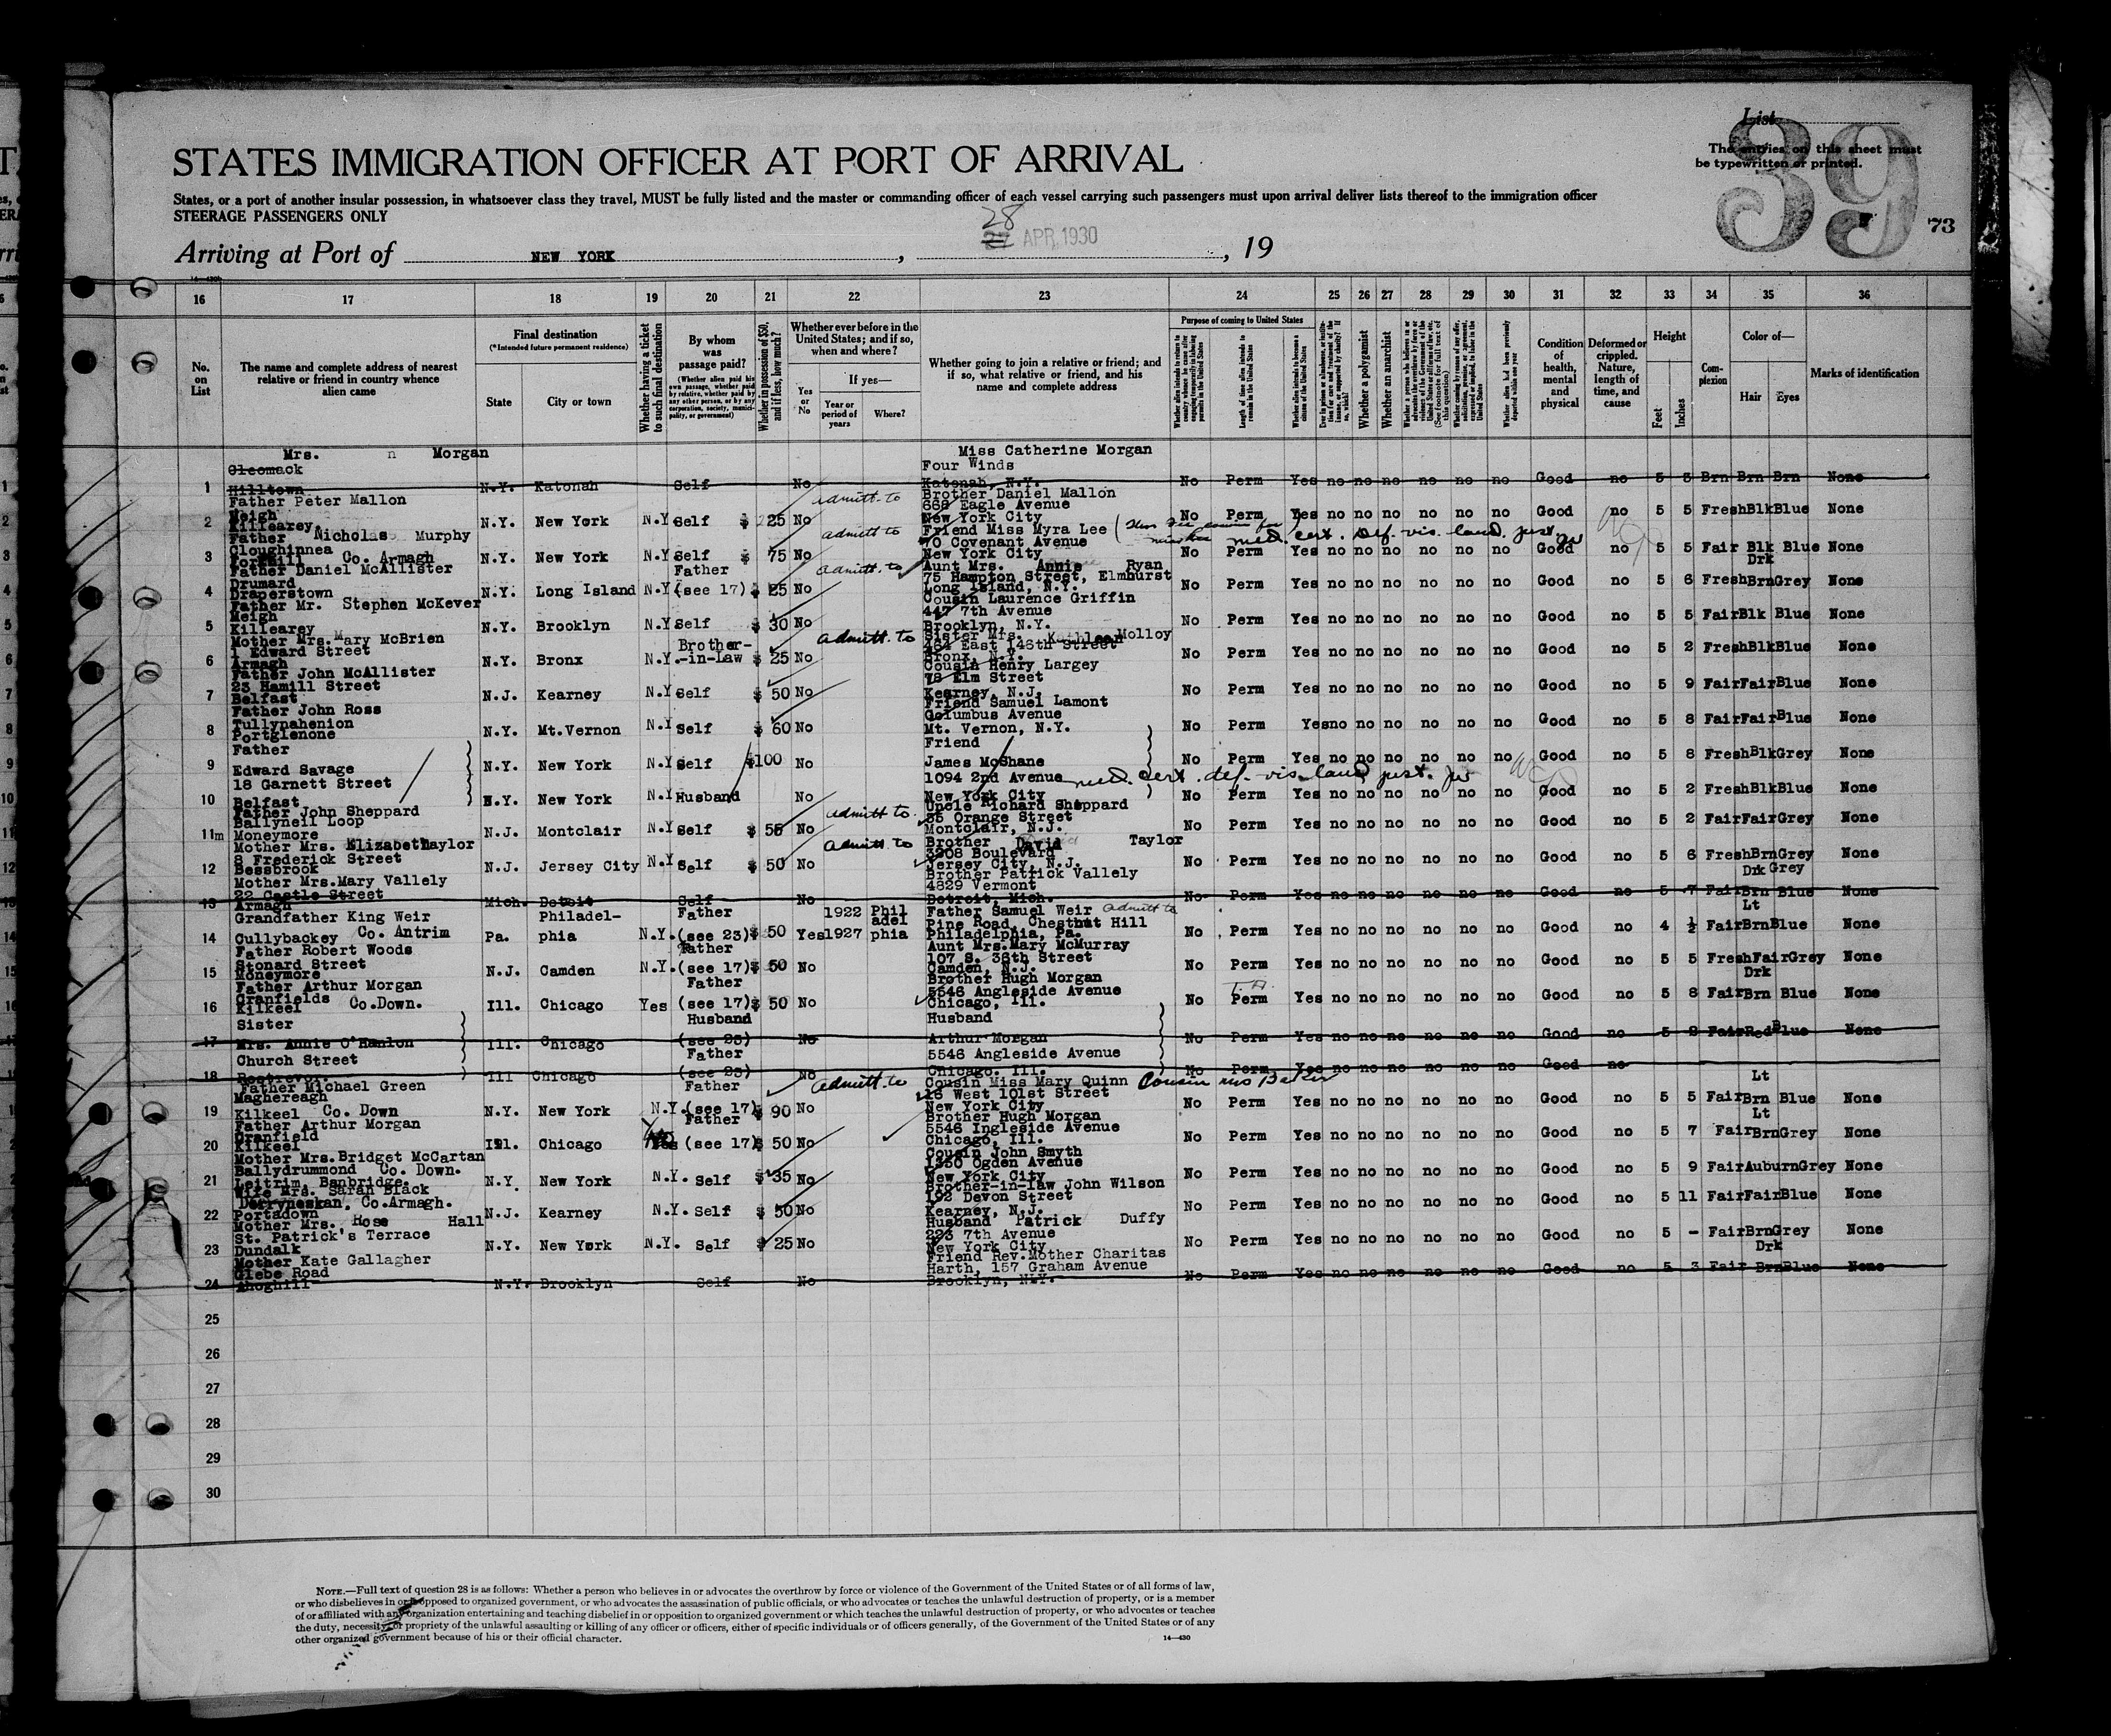 List
The entries on this sheet must
be typewritten or printed.
39
73
STATES IMMIGRATION OFFICER AT PORT OF ARRIVAL
States, or a port of another insular possession, in whatsoever class they travel, MUST be fully listed and the master or commanding officer of each vessel carrying such passengers must upon arrival deliver lists thereof to the immigration officer
STEERAGE PASSENGERS ONLY
28
27 APR 1930
Arriving at Port of NEW YORK , , 19
16 17 18 19 20 21 22 23 24 25 26 27 28 29 30 31 32 33 34 35 36
No. on List
The name and complete address of nearest relative or friend in country whence alien came
Final destination
(*Intended future permanent residence)
State
City or town
Whether having a ticket to such final destination
By whom was passage paid?
(Whether alien paid his own passage, whether paid by relative, whether paid by any other person, or by any corporation, society, municipality, or government)
Whether in possession of $50, and if less, how much?
Whether ever before in the United States; and if so, when and where?
Yes or No
If yes—
Year or period of years
Where?
Whether going to join a relative or friend; and if so, what relative or friend, and his name and complete address
Purpose of coming to United States
Length of time alien intends to remain in the United States
Whether alien intends to become a citizen of the United States
Whether a polygamist
Whether an anarchist
Condition of health, mental and physical
Deformed or crippled. Nature, length of time, and cause
Height
Feet
Inches
Complexion
Color of—
Hair
Eyes
Marks of identification
Mrs. n Morgan
Cleomack
Hilltown
1 N.Y. Katonah Self No
Miss Catherine Morgan
Four Winds
Katonah, N.Y.
No Perm Yes no no no no no no Good no 5 3 Brn Brn Brn None
Father Peter Mallon
Meigh
Killearey.
2 N.Y. New York N.Y. Self $ 25 No admitt. to
Brother Daniel Mallon
668 Eagle Avenue
New York City
No Perm Yes no no no no no no Good no 5 5 Fresh Blk Blue None
Father Nicholas Murphy
Cloughinnea
Forkhill Co. Armagh
3 N.Y. New York N.Y. Self $ 75 No admitt to
Friend Miss Myra Lee
70 Covenant Avenue
New York City
med. cert. def. vis. land. just.
No Perm Yes no no no no no no Good no 5 5 Fair Blk Blue None
Father Daniel McAllister
Drumard
Draperstown
4 N.Y. Long Island N.Y. Father (see 17) $ 25 No admitt. to
Aunt Mrs. Annie Ryan
75 Hampton Street, Elmhurst
Long Island, N.Y.
No Perm Yes no no no no no no Good no 5 6 Fresh Drk Brn Grey None
Father Mr. Stephen McKever
Meigh
Killearey
5 N.Y. Brooklyn N.Y. Self $ 30 No
Cousin Laurence Griffin
447 7th Avenue
Brooklyn, N.Y.
No Perm Yes no no no no no no Good no 5 5 Fair Blk Blue None
Mother Mrs. Mary McBrien
1 Edward Street
Armagh
6 N.Y. Bronx N.Y. Brother-in-Law $ 25 No admitt. to
Sister Mrs. Kathleen Molloy
464 East 146th Street
Bronx, N.Y.
No Perm Yes no no no no no no Good no 5 2 Fresh Blk Blue None
Father John McAllister
23 Hamill Street
Belfast
7 N.J. Kearney N.Y. Self $ 50 No
Cousin Henry Largey
78 Elm Street
Kearney, N.J.
No Perm Yes no no no no no no Good no 5 9 Fair Fair Blue None
Father John Ross
Tullynahenion
Portglenone
8 N.Y. Mt. Vernon N.Y. Self $ 60 No
Friend Samuel Lamont
Columbus Avenue
Mt. Vernon, N.Y.
No Perm Yes no no no no no no Good no 5 8 Fair Fair Blue None
Father
Edward Savage
18 Garnett Street
Belfast
9 N.Y. New York N.Y. Self $100 No
Friend
James McShane
1094 2nd Avenue
New York City
No Perm Yes no no no no no no Good no 5 8 Fresh Blk Grey None
med. cert. def. vis. land just.
10 N.Y. New York N.Y. Husband No
No Perm Yes no no no no no no Good no 5 2 Fresh Blk Blue None
Father John Sheppard
Ballyneil Loop
Moneymore
11m N.J. Montclair N.Y. Self $ 55 No admitt to
Uncle Richard Sheppard
35 Orange Street
Montclair, N.J.
No Perm Yes no no no no no no Good no 5 2 Fair Fair Grey None
Mother Mrs. Elizabeth Taylor
8 Frederick Street
Bessbrook
12 N.J. Jersey City N.Y. Self $ 50 No admitt to
Brother David Taylor
3208 Boulevard
Jersey City, N.J.
No Perm Yes no no no no no no Good no 5 6 Fresh Brn Grey None
Mother Mrs. Mary Vallely
22 Castle Street
Armagh
13 Mich. Detoit Self No
Brother Patrick Vallely
4829 Vermont
Detroit, Mich.
No Perm Yes no no no no no no Good no 5 7 Fair Drk Brn Grey Blue None
Grandfather King Weir
Cullybackey Co. Antrim
14 Pa. Philadelphia N.Y. Father (see 23) $ 50 Yes 1922 1927 Philadelphia
Father Samuel Weir admitt to
Pine Road, Chestnut Hill
Philadelphia, Pa.
No Perm Yes no no no no no no Good no 4 ½ Fair Lt Brn Blue None
Father Robert Woods
Stonard Street
Moneymore
15 N.J. Camden N.Y. Father (see 17) $ 50 No
Aunt Mrs. Mary McMurray
107 S. 36th Street
Camden, N.J.
No Perm Yes no no no no no no Good no 5 5 Fresh Fair Grey None
Father Arthur Morgan
Granfields
Kilkeel Co. Down.
16 Ill. Chicago Yes Father (see 17) $ 50 No
Brother Hugh Morgan
5546 Angleside Avenue
Chicago, Ill.
No Perm Yes no no no no no no Good no 5 8 Fair Drk Brn Blue None
Sister
Mrs. Annie O'Hanlon
Church Street
Rostrevor
17 Ill. Chicago Husband (see 23) No
Husband
Arthur Morgan
5546 Angleside Avenue
Chicago. Ill.
No Perm Yes no no no no no no Good no 5 8 Fair Red Blue None
18 Ill Chicago Father (see 23) No
No Perm Yes no no no no no no Good no
Father Michael Green
Maghereagh
Kilkeel Co. Down
19 N.Y. New York N.Y. Father (see 17) $ 90 No admitt. to
Cousin Miss Mary Quinn
16 West 101st Street
New York City
No Perm Yes no no no no no no Good no 5 5 Fair Lt Brn Blue None
Father Arthur Morgan
Granfield
Kilkeel
20 Ill. Chicago Yes Father (see 17) $ 50 No
Brother Hugh Morgan
5546 Ingleside Avenue
Chicago, Ill.
No Perm Yes no no no no no no Good no 5 7 Fair Lt Brn Grey None
Mother Mrs. Bridget McCartan
Ballydrummond Co. Down.
Leitrim, Banbridge.
21 N.Y. New York N.Y. Self $ 35 No
Cousin John Smyth
1350 Ogden Avenue
New York City
No Perm Yes no no no no no no Good no 5 9 Fair Auburn Grey None
Wife Mrs. Sarah Black
Derryneskan, Co. Armagh.
Portadown
22 N.J. Kearney N.Y. Self $ 50 No
Brother-in-law John Wilson
192 Devon Street
Kearney, N.J.
No Perm Yes no no no no no no Good no 5 11 Fair Fair Blue None
Mother Mrs. Rose Hall
St. Patrick's Terrace
Dundalk
23 N.Y. New York N.Y. Self $ 25 No
Husband Patrick Duffy
223 7th Avenue
New York City
No Perm Yes no no no no no no Good no 5 - Fair Brn Grey None
Mother Kate Gallagher
Glebe Road
Ahoghill
24 N.Y. Brooklyn Self No
Friend Rev. Mother Charitas
Harth, 157 Graham Avenue
Brooklyn, N.Y.
No Perm Yes no no no no no no Good no 5 3 Fair Drk Brn Blue None
25
26
27
28
29
30
NOTE.—Full text of question 28 is as follows: Whether a person who believes in or advocates the overthrow by force or violence of the Government of the United States or of all forms of law,
or who disbelieves in or is opposed to organized government, or who advocates the assassination of public officials, or who advocates or teaches the unlawful destruction of property, or is a member
of or affiliated with any organization entertaining and teaching disbelief in or opposition to organized government or which teaches the unlawful destruction of property, or who advocates or teaches
the duty, necessity, or propriety of the unlawful assaulting or killing of any officer or officers, either of specific individuals or of officers generally, of the Government of the United States or of any
other organized government because of his or their official character.
14—430